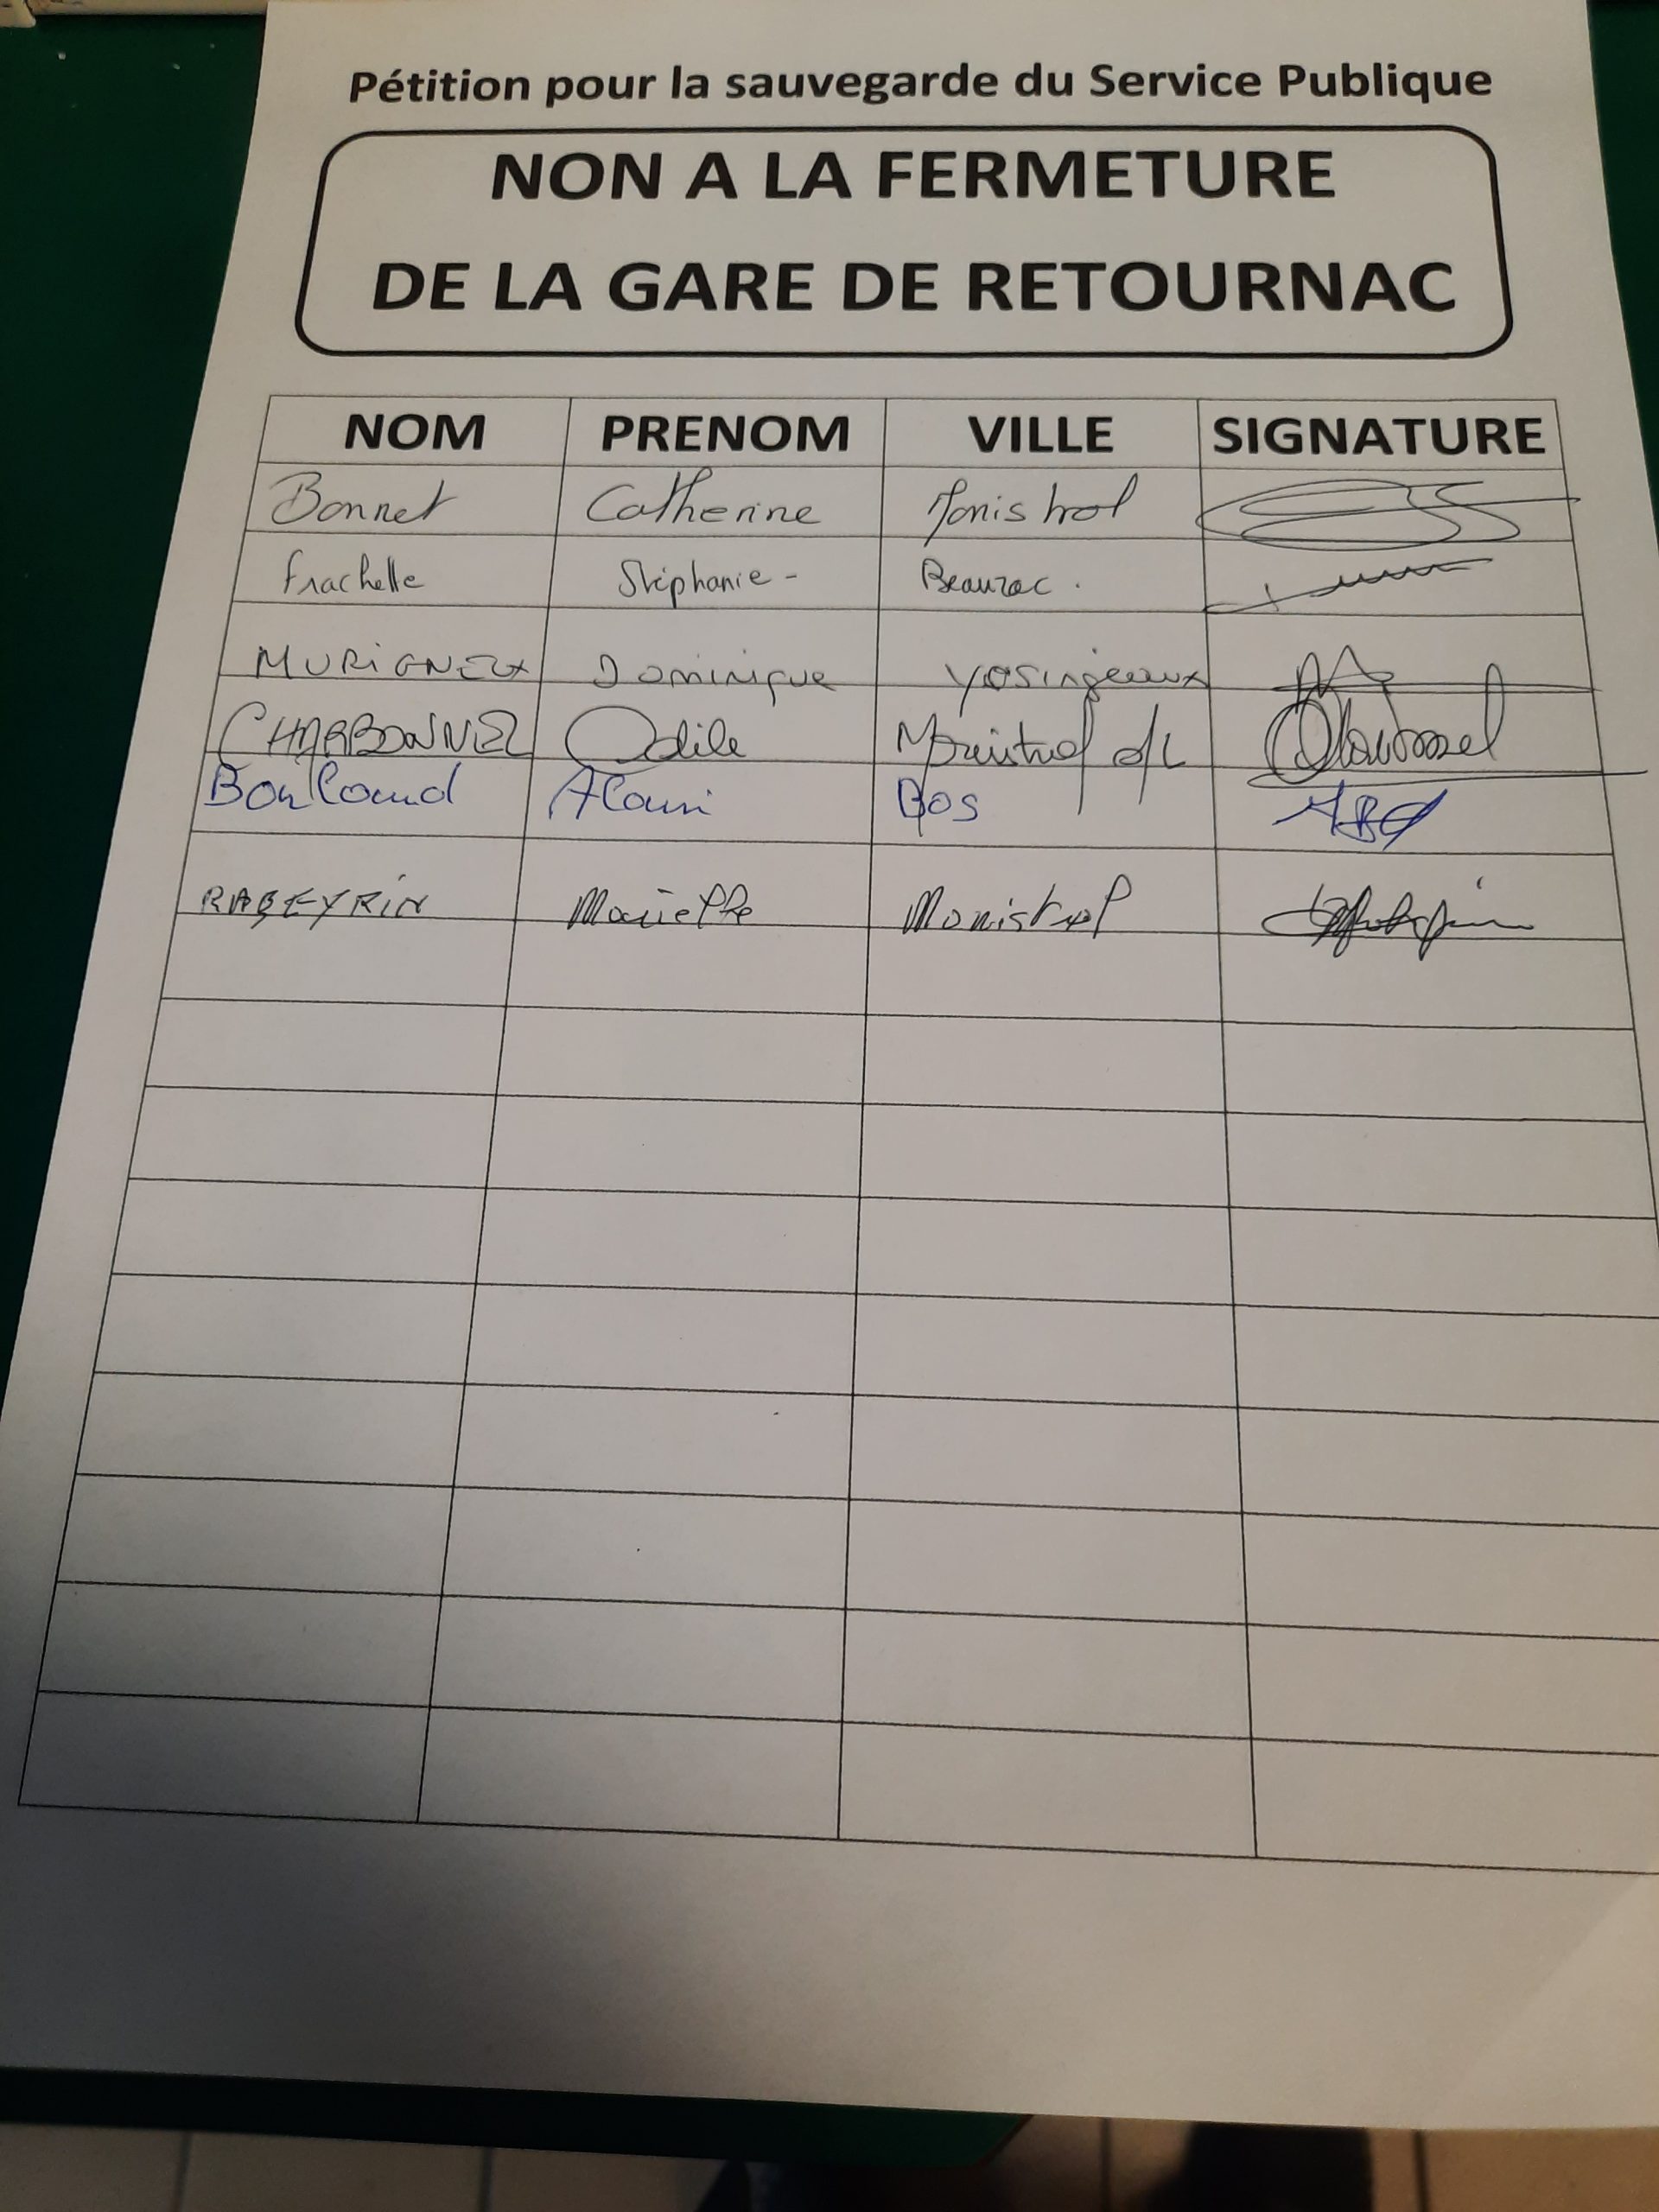 Pétition pour la sauvegarde du Service Publique
NON A LA FERMETURE
DE LA GARE DE RETOURNAC
NOM PRENOM VILLE SIGNATURE
Bonnet Catherine Monistrol
Frachette Stéphanie - Beauzac .
MURiGNEUX Dominique Yssingeaux
CHARBONNEL Odile Monistrol s/L
Alain Bas
RABEYRiN Monistrol